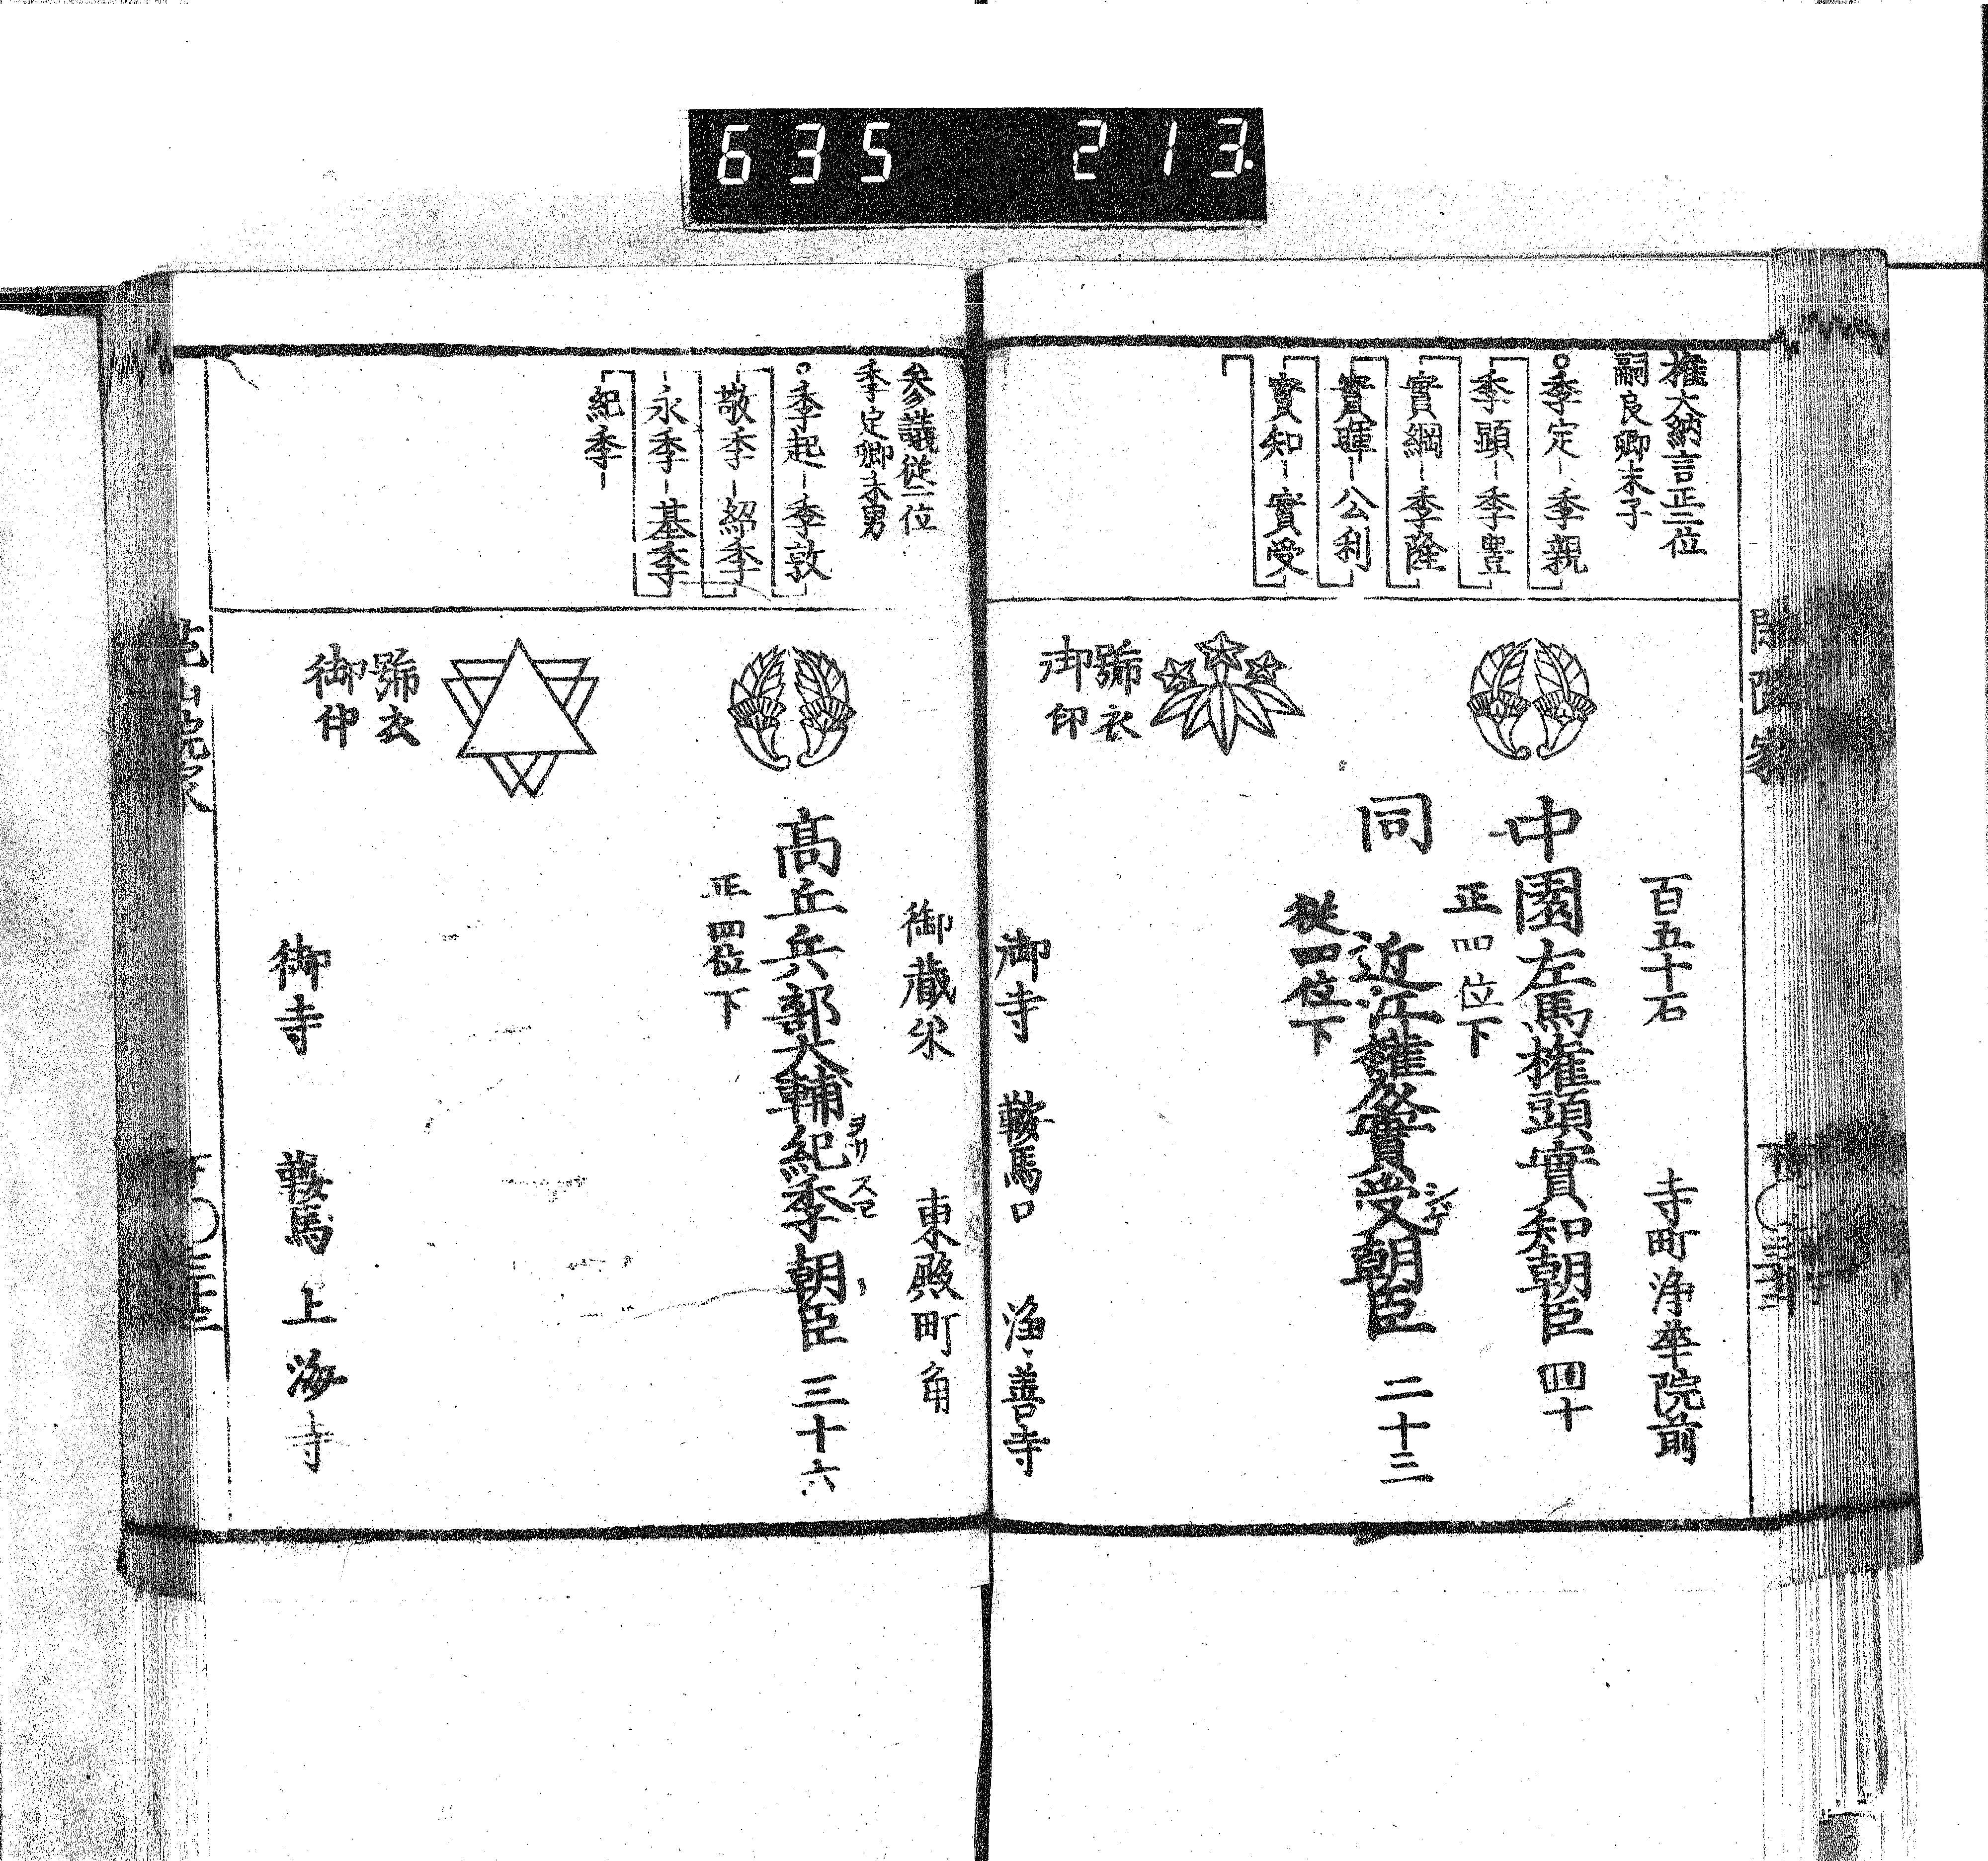 635 213.
權大納言正二位
嗣良卿末子
○季定─季親
季顕─季豐
實綱─季隆
實暉─公利
實知─實受
百五十石
寺町浄華院前
中園左馬權頭實知朝臣 四十
正四位下
同 近江權介實受朝臣 二十三
從四位下
號衣
御印
御寺 鞍馬口 浄善寺
參議従二位
季定卿末男
○季起─季敦
敬季─紹季
永季─基季
紀季─
御藏米
東殿町角
高丘兵部大輔紀季朝臣 三十六
正四位下
號衣
御印
御寺 鞍馬 上海寺